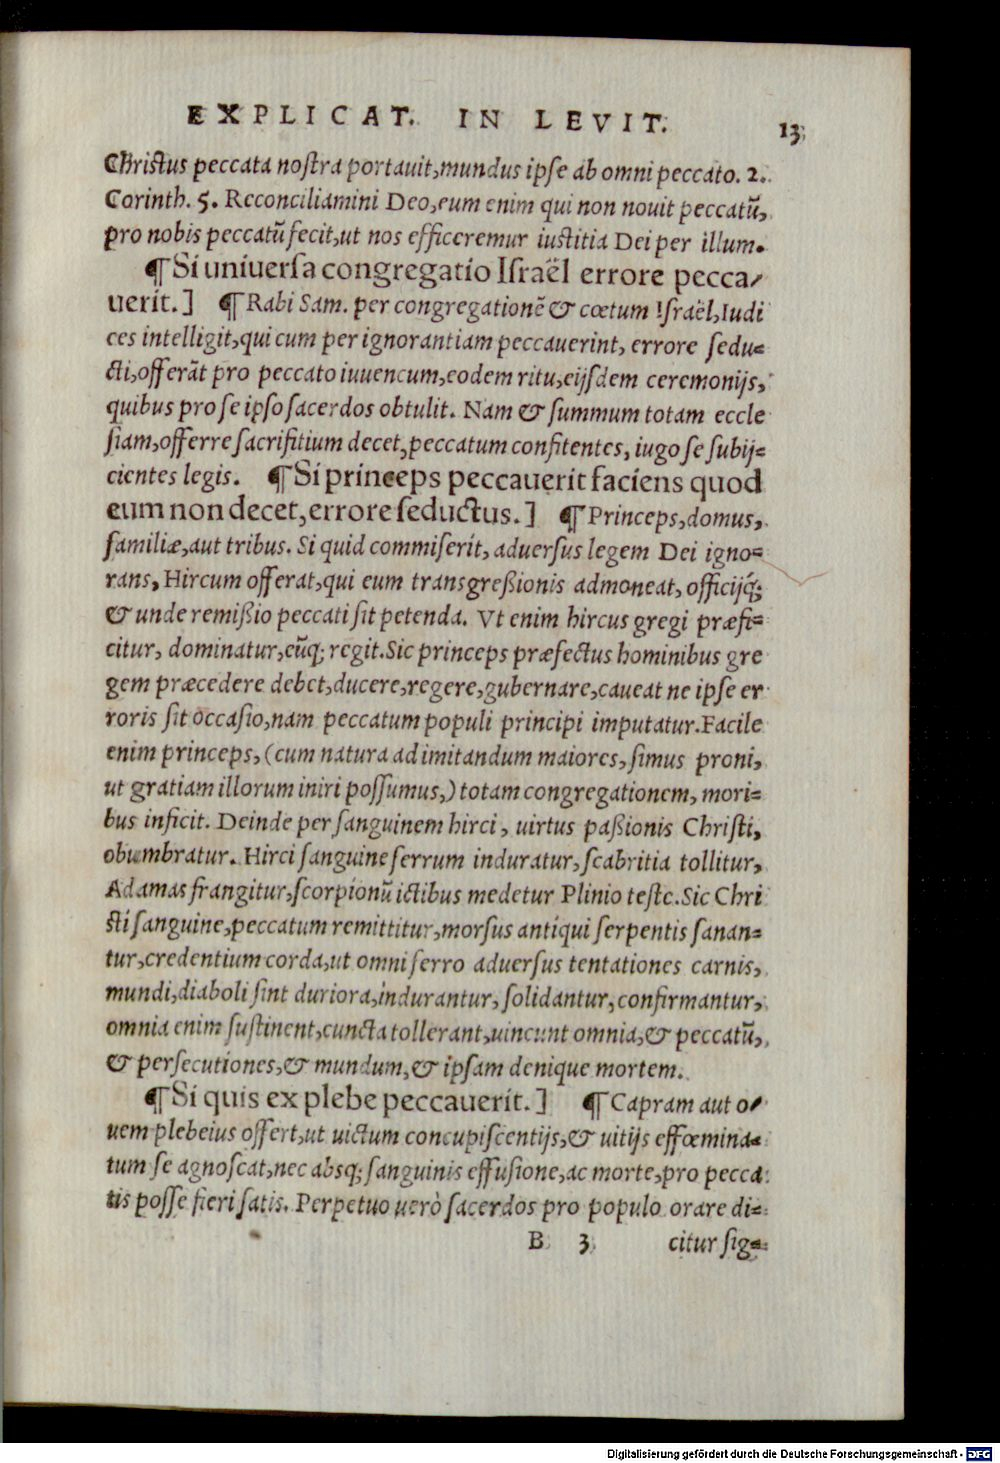 EXPLICAT. IN LEVIT. 13
Christus peccata nostra portauit, mundus ipse ab omni peccato. 2.
Corinth. 5. Reconciliamini Deo, eum enim qui non nouit peccatũ,
pro nobis peccatũ fecit, ut nos efficeremur iustitia Dei per illum.
¶ Si uniuersa congregatio Israël errore pecca-
uerit.] ¶ Rabi Sam. per congregationẽ & cœtum Israël, Iudi
ces intelligit, qui cum per ignorantiam peccauerint, errore sedu=
cti, offerãt pro peccato iuuencum, eodem ritu, eijsdem ceremonijs,
quibus pro se ipso sacerdos obtulit. Nam & summum totam eccle
siam, offerre sacrifitium decet, peccatum confitentes, iugo se subij=
cientes legis. ¶ Si princeps peccauerit faciens quod
eum non decet, errore seductus.] ¶ Princeps, domus,
familiæ, aut tribus. Si quid commiserit, aduersus legem Dei igno=
rans, Hircum offerat, qui eum transgreßionis admoneat, officijq́;
& unde remißio peccati sit petenda. Vt enim hircus gregi præfi=
citur, dominatur, eũq; regit. Sic princeps præfectus hominibus gre
gem præcedere debet, ducere, regere, gubernare, caueat ne ipse er
roris sit occasio, nam peccatum populi principi imputatur. Facile
enim princeps, (cum natura ad imitandum maiores, simus proni,
ut gratiam illorum iniri possumus,) totam congregationem, mori=
bus inficit. Deinde per sanguinem hirci, uirtus paßionis Christi,
obumbratur. Hirci sanguine ferrum induratur, scabritia tollitur,
Adamas frangitur, scorpionũ ictibus medetur Plinio teste. Sic Chri
sti sanguine, peccatum remittitur, morsus antiqui serpentis sanan=
tur, credentium corda, ut omni ferro aduersus tentationes carnis,
mundi, diaboli sint duriora, indurantur, solidantur, confirmantur,
omnia enim sustinent, cuncta tollerant, uincunt omnia, & peccatũ,
& persecutiones, & mundum, & ipsam denique mortem.
¶ Si quis ex plebe peccauerit.] ¶ Capram aut o-
uem plebeius offert, ut uictum concupiscentijs, & uitijs effœmina=
tum se agnoscat, nec absq; sanguinis effusione, ac morte, pro pecca
tis posse fieri satis. Perpetuo uerò sacerdos pro populo orare di=
B 3 citur sig=
Digitalisierung gefördert durch die Deutsche Forschungsgemeinschaft - DFG